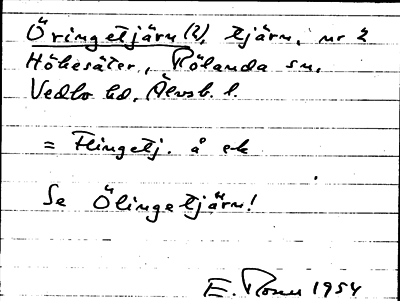 Öringetjärn (2), tjärn, nr 2
Hökesäter, Rölanda sn,
Vedbo hd, Älvsb. l.
= Flingetj. å ek
Se Ölingetjärn!
E. Rosen 1954